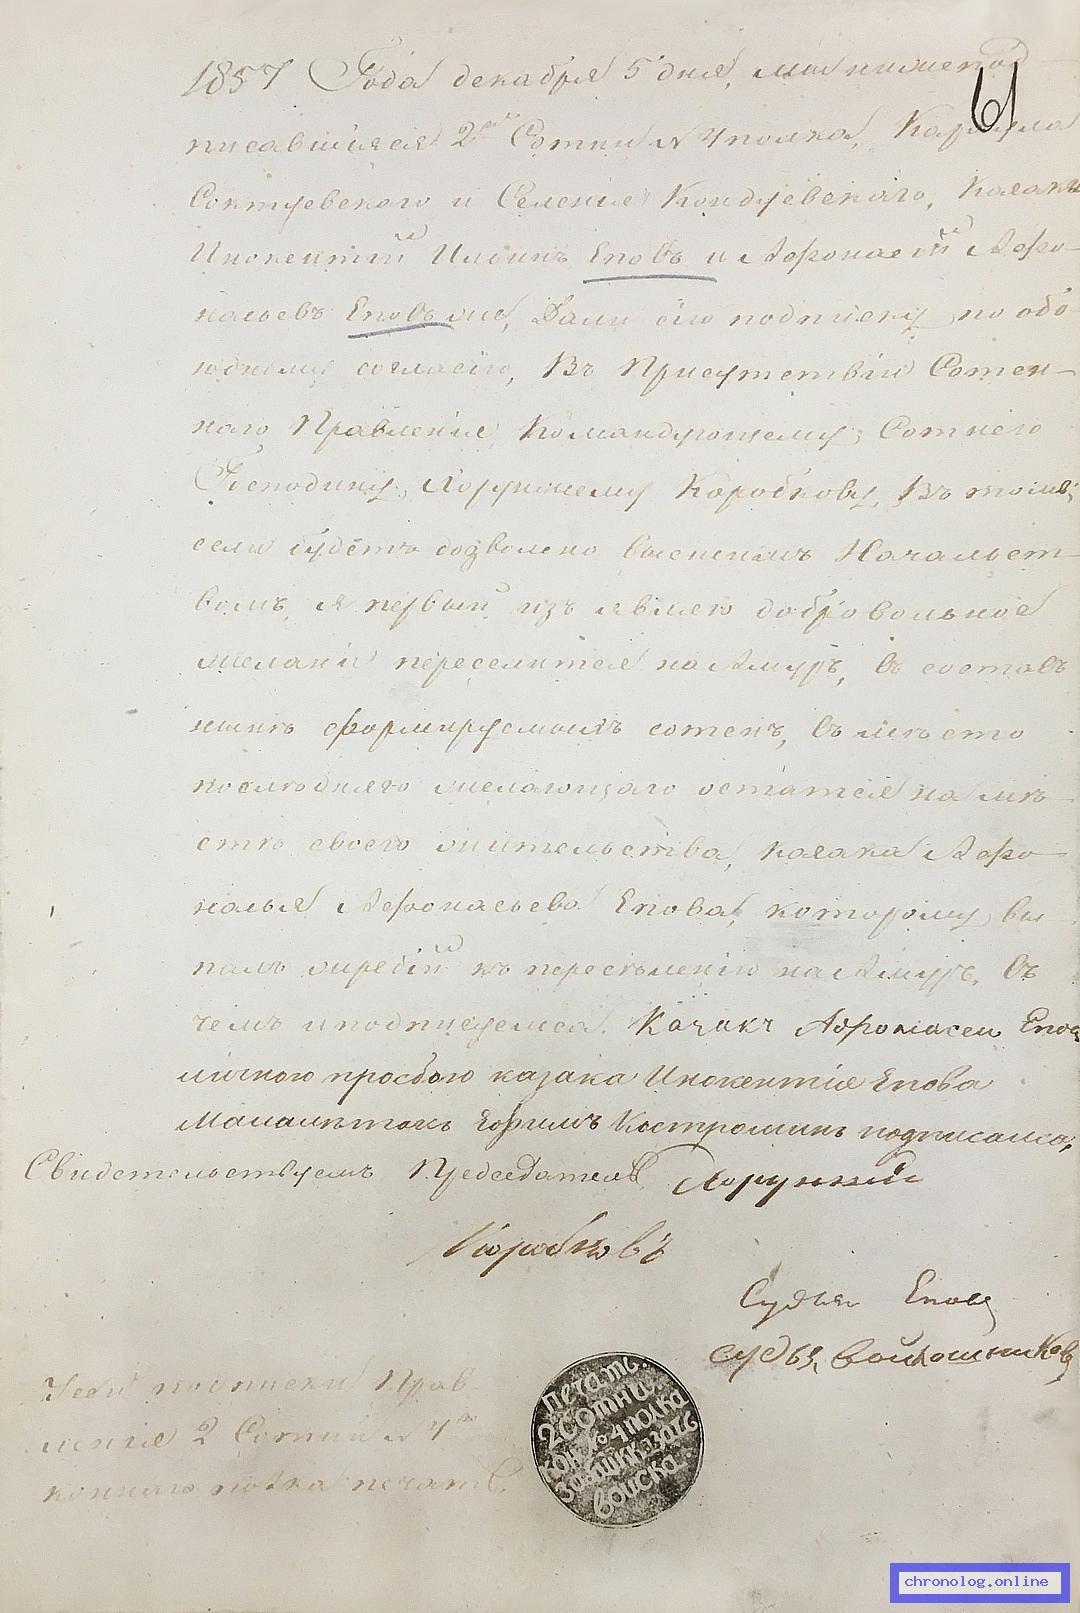 1857 Года декабря 5 дня, мы нижепод
61
писавшіяся 2й Сотни N 4 полка, Караула
Соктуевского и Селенія Кондуевскаго, Казаки
Инокентій Ильинъ Еповъ и Афонасій Афо-
насьевъ Еповъ же, Дали сію подписку по обо-
юдному согласію, Въ Присутствіи Сотен-
наго Правленія, Командующему Сотнею
Господину Хорунжему Коробкову, Въ томъ,
если будетъ дозволено высшимъ Начальст-
вомъ, я первый изъ являю добровольное
желаніи переселится на Амуръ, въ составъ
нынѣ сформируемыхъ сотенъ, въ мѣсто
послѣдняго желающаго остатся на мѣ-
стѣ своего жительства, казака Афо-
насья Афонасьева Епова, которому вы
палъ жребій къ переселенію на Амуръ, въ
чемъ и подписуемся. Казакъ Афонасеи Епов
личною просбою казака Инокентія Епова
Малалѣтокъ Ефимъ Костроминъ подписался,
Свидетельствуемъ Председатель Хорунжій
Коробковъ
Судья Епов
судья, Волошников
У сей подписки Прав
ленія 2 Сотни N 4го
коннаго полка печать.
Печать.
2 Сотни.
кон. № 4 полка
Забайк. каз.
Войска.
chronolog.online